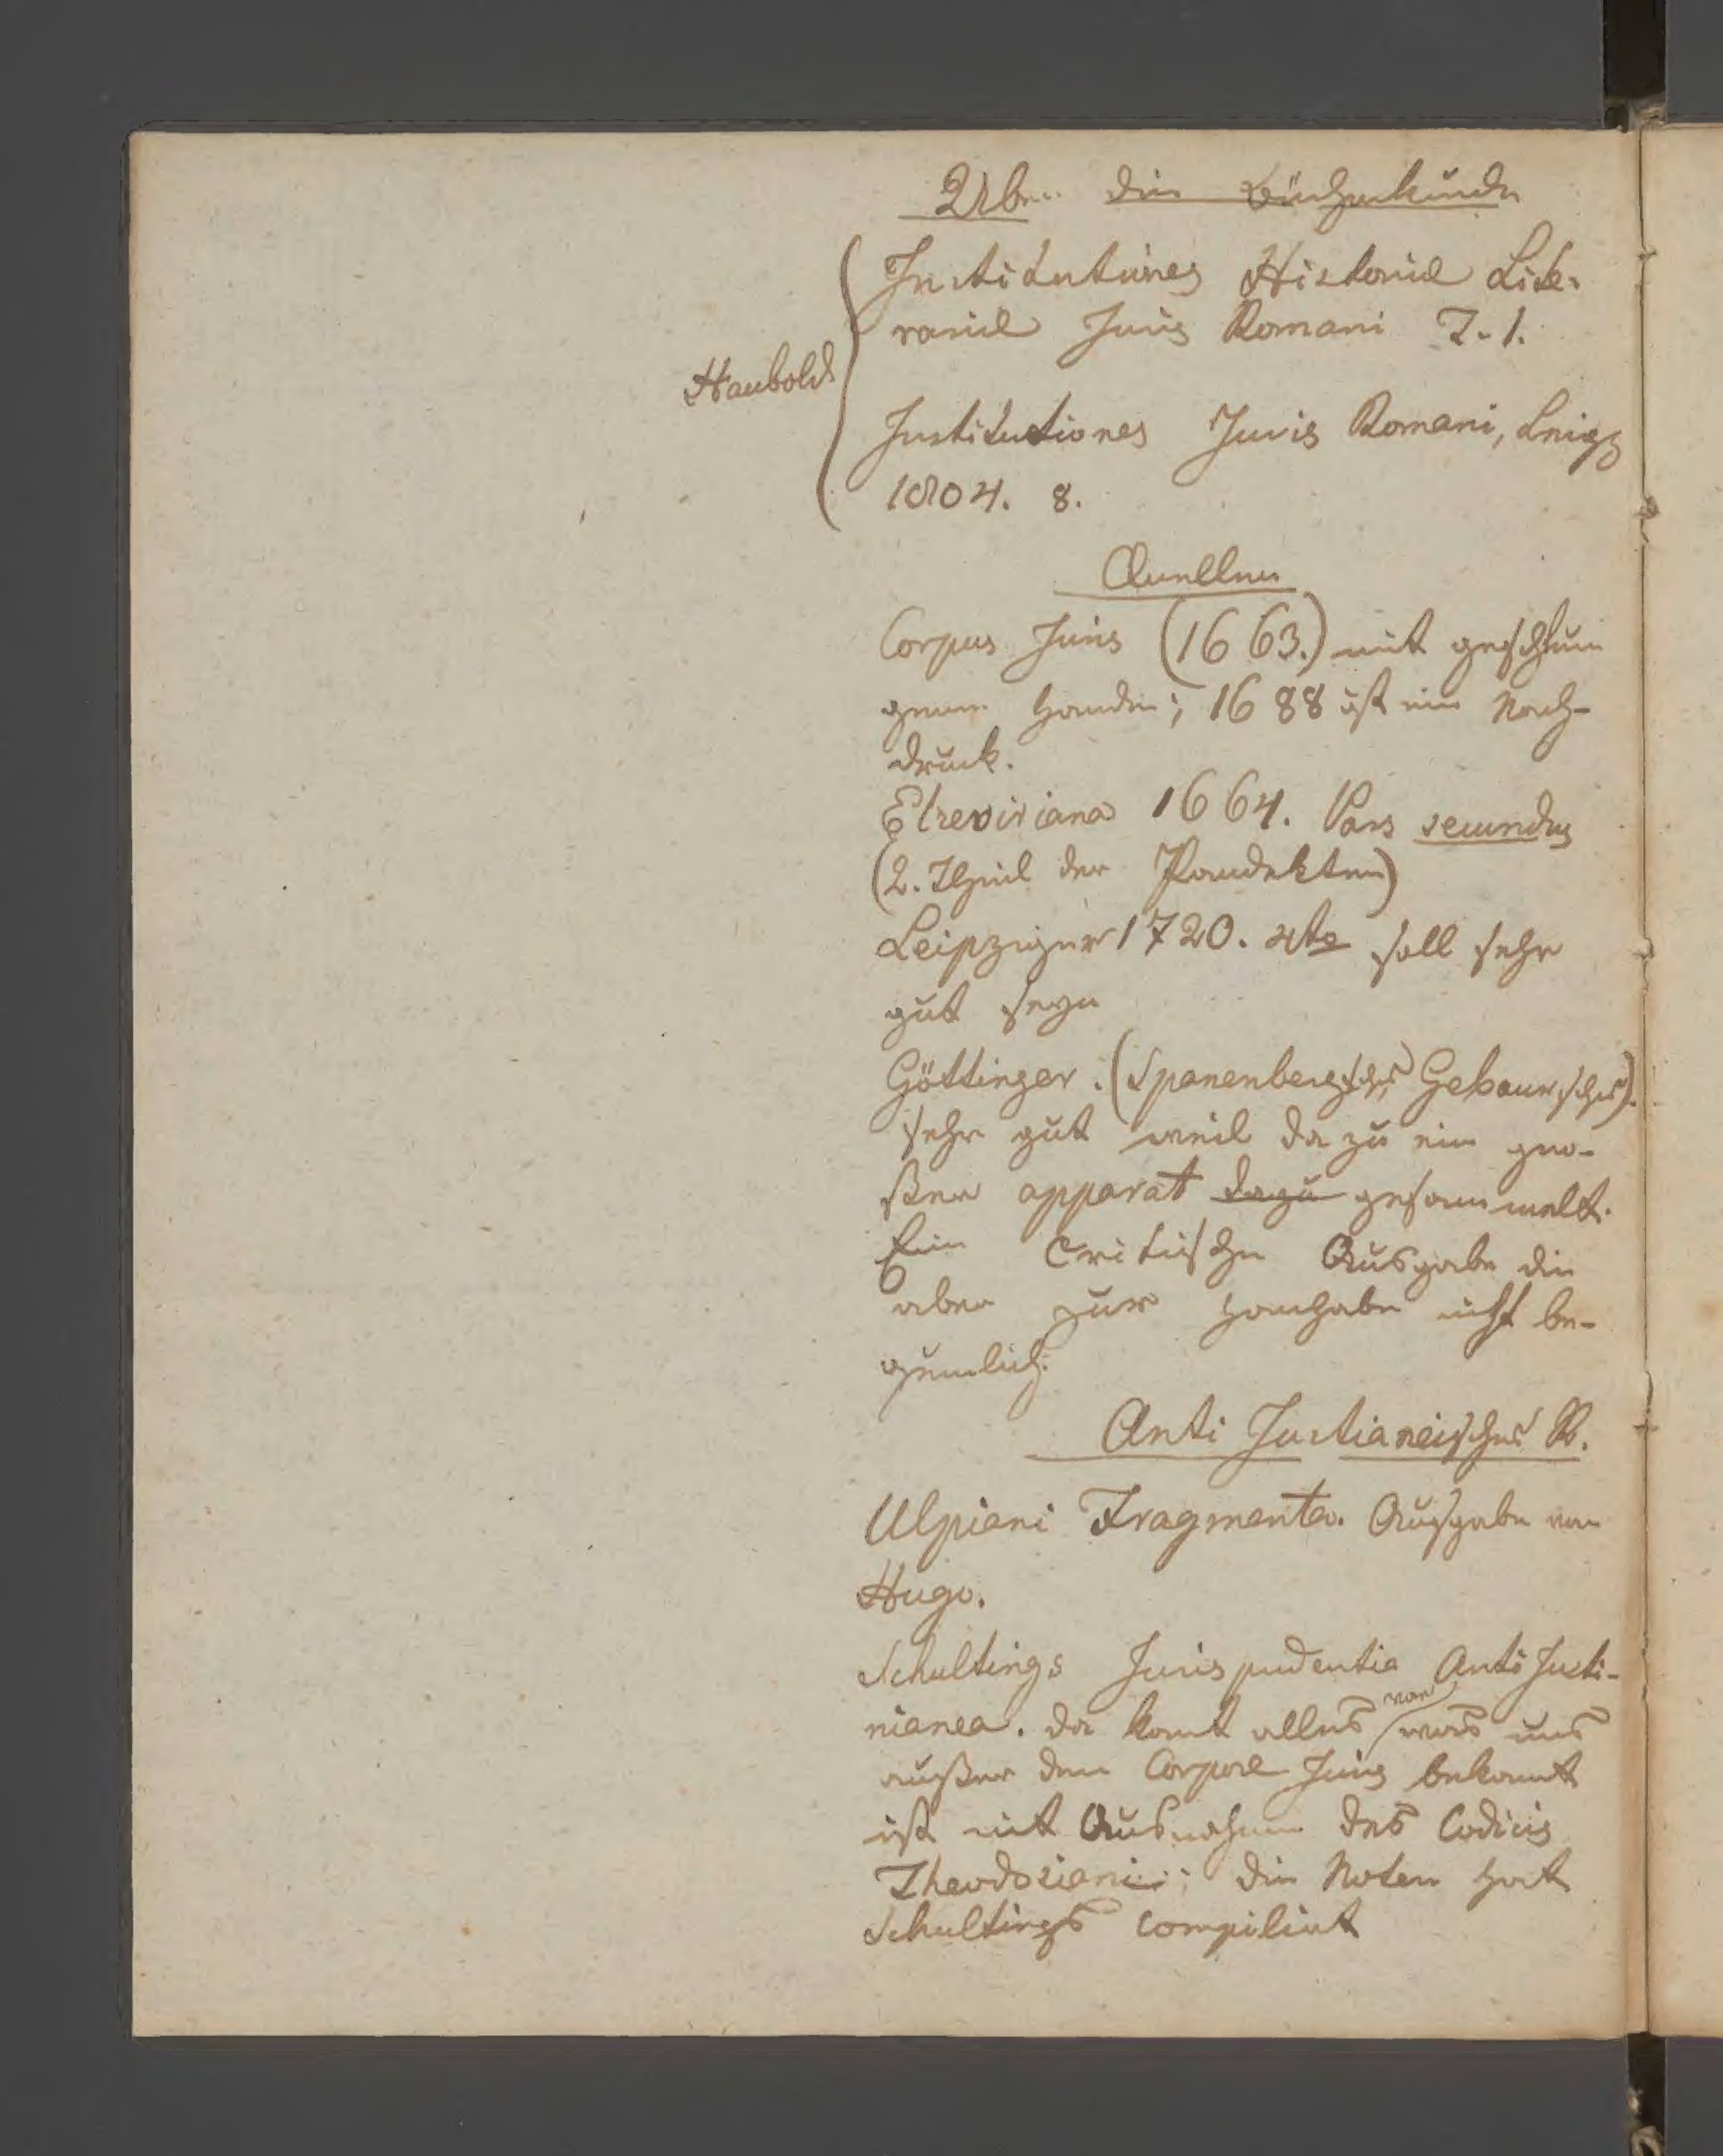 Über die Bücherkunde
Institutiones Historiae Lite-
rariae Juris Romani T. 1.
Haubold
Institutiones Juris Romani, Leipz
1804. 8.
Quellen
Corpus Juris (1663.) mit geschlun
genen Händen; 1688 ist ein Nach-
druck.
Elzeviriana 1664. Pars secundus
(2. Theil der Pandekten)
Leipziger 1720. 4to soll sehr
gut seyn
Göttinger. (Spanenbergsche, Gebauersche).
sehr gut weil da zu ein gro-
ßer apparat dazu gesammelt.
Eine Critische Ausgabe die
aber zur Handhabe nicht be-
quemlich.
Anti Justianeisches R.
Ulpiani Fragmenta. Ausgabe von
Hugo.
Schultings Jurispudentia AntiJusti-
nianea. da komt alles vor was uns
außer dem Corpore Juris bekannt
ist mit Ausnahme des Codicis
Theodosiani; die Noten hat
Schultings compilirt